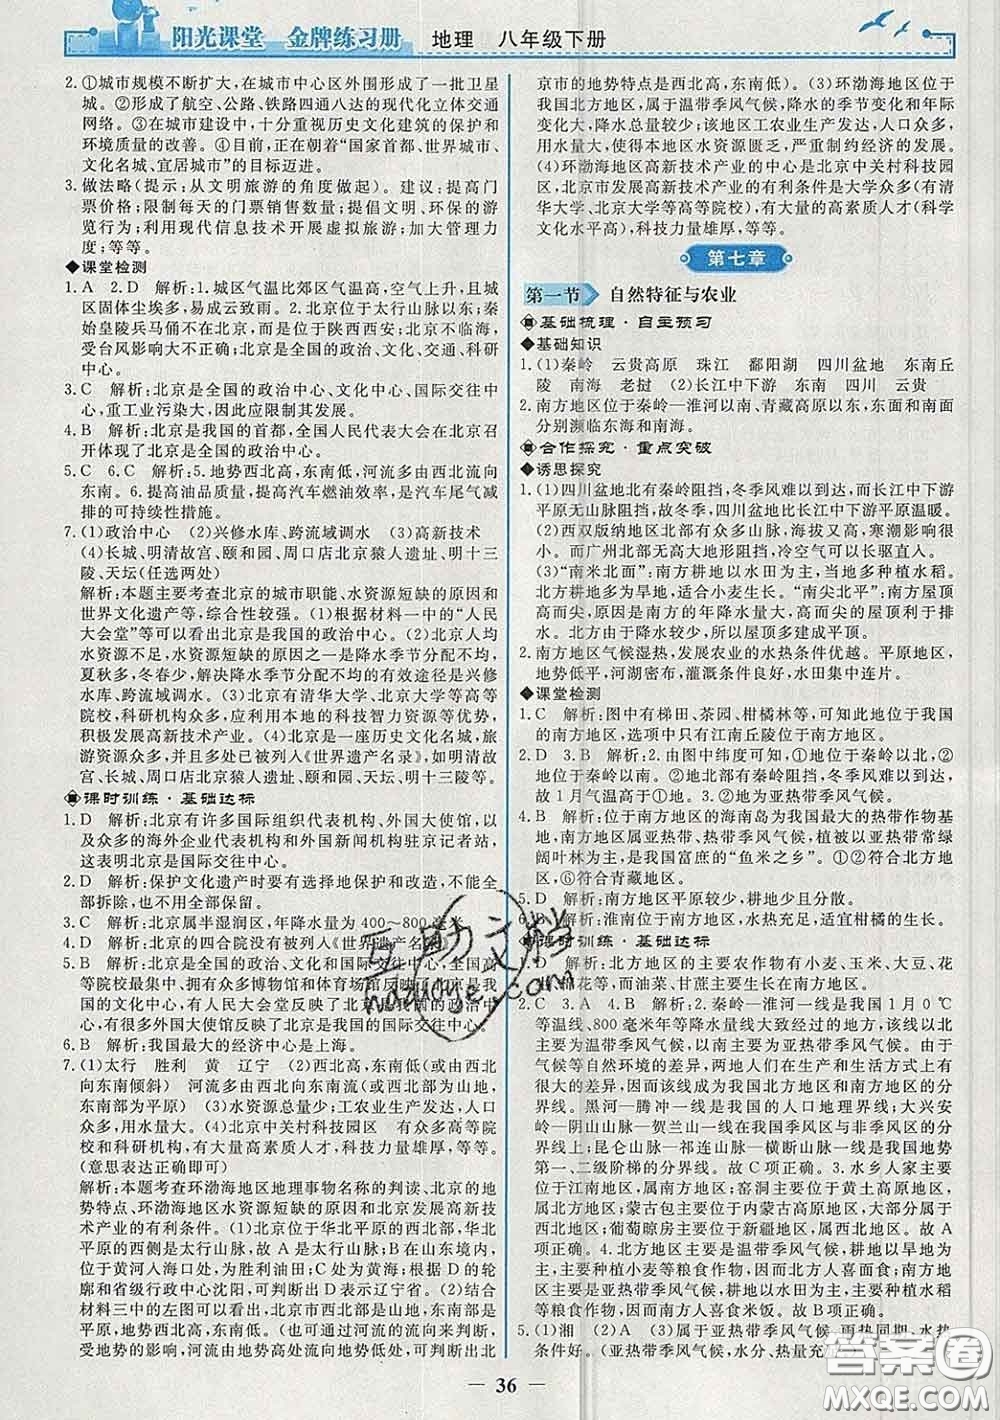 阳光课堂 金牌练习册 地理 八年级下册
2. ①城市规模不断扩大,在城市中心区外围形成了一批卫星
城。②形成了航空、公路、铁路四通八达的现代化立体交通
网络。③在城市建设中,十分重视历史文化建筑的保护和
环境质量的改善。④目前,正在朝着“国家首都、世界城市、
文化名城、宜居城市”的目标迈进。
3. 做法略(提示:从文明旅游的角度做起)。建议:提高门
票价格;限制每天的门票销售数量;提倡文明、环保的游
览行为;利用现代信息技术开展虚拟旅游;加大管理力
度;等等。
◆课堂检测
1. A 2. D 解析:1.城区气温比郊区气温高,空气上升,且城
区固体尘埃多,易成云致雨。2.北京位于太行山脉以东;秦
始皇陵兵马俑不在北京,而是位于陕西西安;北京不临海,
受台风影响大不正确;北京是全国的政治、文化、交通、科研
中心。
3. C 解析:北京是全国的政治中心、文化中心、国际交往中
心,重工业污染大,因此应限制其发展。
4. B 解析:北京是我国的首都,全国人民代表大会在北京召
开体现了北京是全国的政治中心。
5. C 6. C 解析:5.地势西北高,东南低,河流多由西北流向
东南。6.提高油品质量,提高汽车燃油效率,是汽车尾气减
排的可持续性措施。
7. (1)政治中心 (2)兴修水库、跨流域调水 (3)高新技术
(4)长城、明清故宫、颐和园、周口店北京猿人遗址、明十三
陵、天坛(任选两处)
解析:本题主要考查北京的城市职能、水资源短缺的原因和
世界文化遗产等,综合性较强。(1)根据材料一中的“人民
大会堂”等可以看出北京是我国的政治中心。(2)北京人均
水资源不足,水资源短缺的原因之一是降水季节分配不均,
夏秋多,冬春少,解决降水季节分配不均的有效途径是兴修
水库、跨流域调水。(3)北京有清华大学、北京大学等高等
院校,科研机构众多,应利用本地的科技智力资源等优势,
积极发展高新技术产业。(4)北京是一座历史文化名城,旅
游资源众多,并且多处已被列入《世界遗产名录》,如明清故
宫、长城、周口店北京猿人遗址、颐和园、天坛、明十三陵等。
课时训练·基础达标
1. D 解析:北京有许多国际组织代表机构、外国大使馆,以
及众多的海外企业代表机构和外国新闻机构驻京记者站,
这表明北京是国际交往中心。
2. D 解析:保护文化遗产时要有选择地保护和改造,不能全
部拆掉,也不用全部保留。
3. C 解析:北京属半湿润区,年降水量为400～800毫米。
4. D 解析:北京的四合院没有被列入《世界遗产名录》。
5. B 解析:北京是全国的政治、文化和国际交往中心,全国高
等院校最集中,并有众多博物馆和体育场馆反映了北京是我
国的文化中心,有人民大会堂反映了北京是我国的政治中心,
有很多外国大使馆反映了北京是我国的国际交往中心。
6. B 解析:我国最大的经济中心是上海。
7. (1)太行 胜利 黄 辽宁 (2)西北高,东南低(或由西北
向东南倾斜) 河流多由西北向东南流(或西北部为山地,
东南部为平原) (3)水资源总量少;工农业生产发达,人口
众多,用水量大。(4)北京中关村科技园区 有众多高等院
校和科研机构,有大量高素质人才,科技力量雄厚,等等。
(意思表达正确即可)
解析:本题考查环渤海地区地理事物名称的判读、北京的地
势特点、环渤海地区水资源短缺的原因和北京发展高新技
术产业的有利条件。(1)北京位于华北平原的西北部,华北
平原的西侧是太行山脉,故A是太行山脉;B在山东境内,
位于黄河入海口处,为胜利油田;C处为黄海;根据D的轮
廓和省级行政中心沈阳,可判断出D表示辽宁省。(2)结合
材料三中的左图可以看出,北京市的西北部是山地,东南部
是平原;右图可以通过河流的流向来判断,受地形、地势影
响,北京的河流由西北高处流向东南地势低处,可判断出北
京市的地势特点是西北高,东南低。(3)环渤海地区位于
我国北方地区,属于温带季风气候,降水的季节变化和年际
变化大,降水总量较少;该地区工农业生产发达,人口众多,
用水量大,使得本地区水资源匮乏,严重制约经济的发展。
(4)环渤海地区高新技术产业的中心是北京中关村科技园
区,北京市发展高新技术产业的有利条件是大学众多(有清
华大学、北京大学等高等院校),有大量的高素质人才(科学
文化水平高),科技力量雄厚,等等。
第七章
第一节 自然特征与农业
基础梳理·自主预习
◆基础知识
1. (1)秦岭 云贵高原 珠江 鄱阳湖 四川盆地 东南丘
陵 南海 老挝 (2)长江中下游 东南 四川 云贵
2. 南方地区位于秦岭—淮河以南、青藏高原以东,东面和南面
分别濒临东海和南海。
合作探究·重点突破
◆诱思探究
1. (1)四川盆地北有秦岭阻挡,冬季风难以到达,而长江中下游
平原无山脉阻挡,故冬季,四川盆地比长江中下游平原温暖。
(2)西双版纳地区北部有众多山脉,海拔又高,寒潮影响很
小。而广州北部无高大地形阻挡,冷空气可以长驱直入。
(3)“南米北面”:南方耕地以水田为主,多种植水稻。
北方耕地多为旱地,适合小麦生长。“南尖北平”:南方屋顶
高而尖,原因是南方的年降水量大,高而尖的屋顶利于排
水。北方由于降水较少,所以屋顶多建成平顶。
2. 南方地区气候湿热,发展农业的水热条件优越。平原地区,
地势低平,河湖密布,灌溉条件便利,水田集中连片。
◆课堂检测
1. C 解析:图中有梯田、茶园、柑橘林等,可知此地位于我国
的南方地区,选项中只有江南丘陵位于南方地区。
2. D 3. B 解析:2.由图中纬度可知,①地位于秦岭以北,
②地位于秦岭以南。①②两地之间有秦岭阻挡,冬季风难以
到达,故1月气温高于①地。3.②地为亚热带季风气候。
4. B 解析:位于南方地区的海南岛为我国最大的热带作物基
地,南方地区属亚热带、热带季风气候,植被以亚热带常绿
阔叶林为主,我国富庶的“鱼米之乡”。①②符合北方地
区,⑥符合青藏地区。
5. D 解析:南方地区平原较少,耕地少且分散。
6. B 解析:淮南位于南方地区,水热充足,适宜柑橘的生长。
课时训练·基础达标
解析:北方地区的主要农作物有小麦、玉米、大豆、花
生、棉花等,而油菜、甘蔗主要生长在南方地区。
2. C 3. A 4. B 解析:2.秦岭—淮河一线是我国1月0℃
等温线、800毫米年等降水量线大致经过的地方,该线以北
主要为温带季风气候,以南主要为亚热带季风气候,故该线
南北自然环境的差异而产生的人们在生产和生活方式上有
很大的差异,因此该线为我国北方地区与南方地区的
分界线。黑河—腾冲一线是我国的人口地理界线;大兴安
岭—阴山山脉—贺兰山一线是我国季风区与非季风区的分
界线;昆仑山脉—祁连山脉—横断山脉一线是我国地势
第一、二级阶梯的分界线。故选C项正确。3.水乡人家主要
位于江南地区,属于南方地区;窑洞主要位于黄土高原地
区;蒙古包主要位于内蒙古高原地区,大致位于内蒙古
地区;葡萄晾房主要位于新疆地区,属于西北地区。故A
项正确。4.北方地区主要是温带季风气候,耕地以旱地为
主,主要种植小麦等作物,故北方人喜面食;南方地区
主要为亚热带季风气候,耕地以水田为主,主要种植水稻
等作物,故南方人喜食米饭。故B项正确。
5. (1)湘 (2)A (3)属于亚热带季风气候,雨热同期,水热
条件好。(亚热带季风气候,
36
答案圈
MXQE.COM